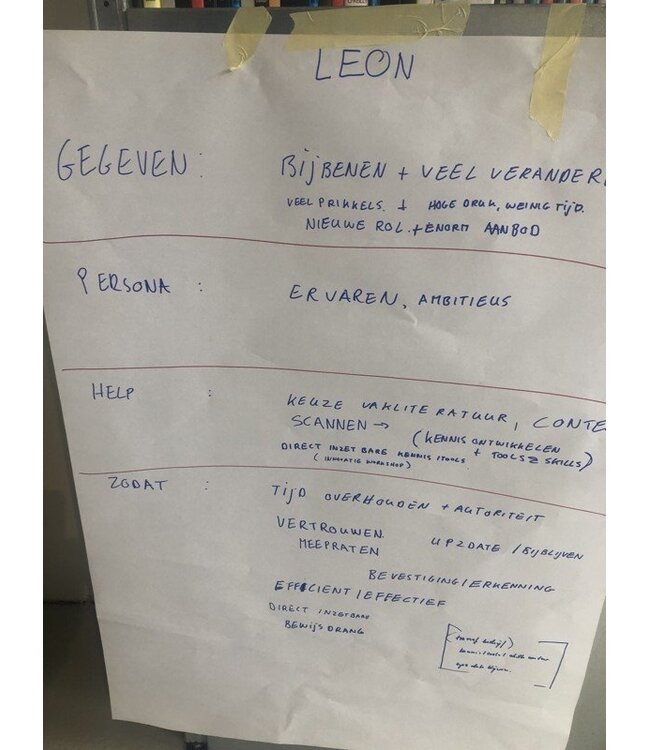 LEON
GEGEVEN: BIJBENEN + VEEL VERANDER
VEEL PRIKKELS. ↓ HOGE DRUK, WEINIG TIJD.
NIEUWE ROL. + ENORM AANBOD
PERSONA : ERVAREN, AMBITIEUS
HELP : KEUZE VAKLITERATUUR, CONTE
SCANNEN → (KENNIS ONTWIKKELEN
DIRECT INZETBARE KENNIS/TOOLS. + TOOLS & SKILLS)
(INNOVATIE WORKSHOP)
ZODAT : TIJD OVERHOUDEN + AUTORITEIT
VERTROUWEN. UP2DATE / BIJBLIJVEN
MEEPRATEN
BEVESTIGING / ERKENNING
EFFICIENT / EFFECTIEF
DIRECT INZETBARE
BEWIJSDRANG